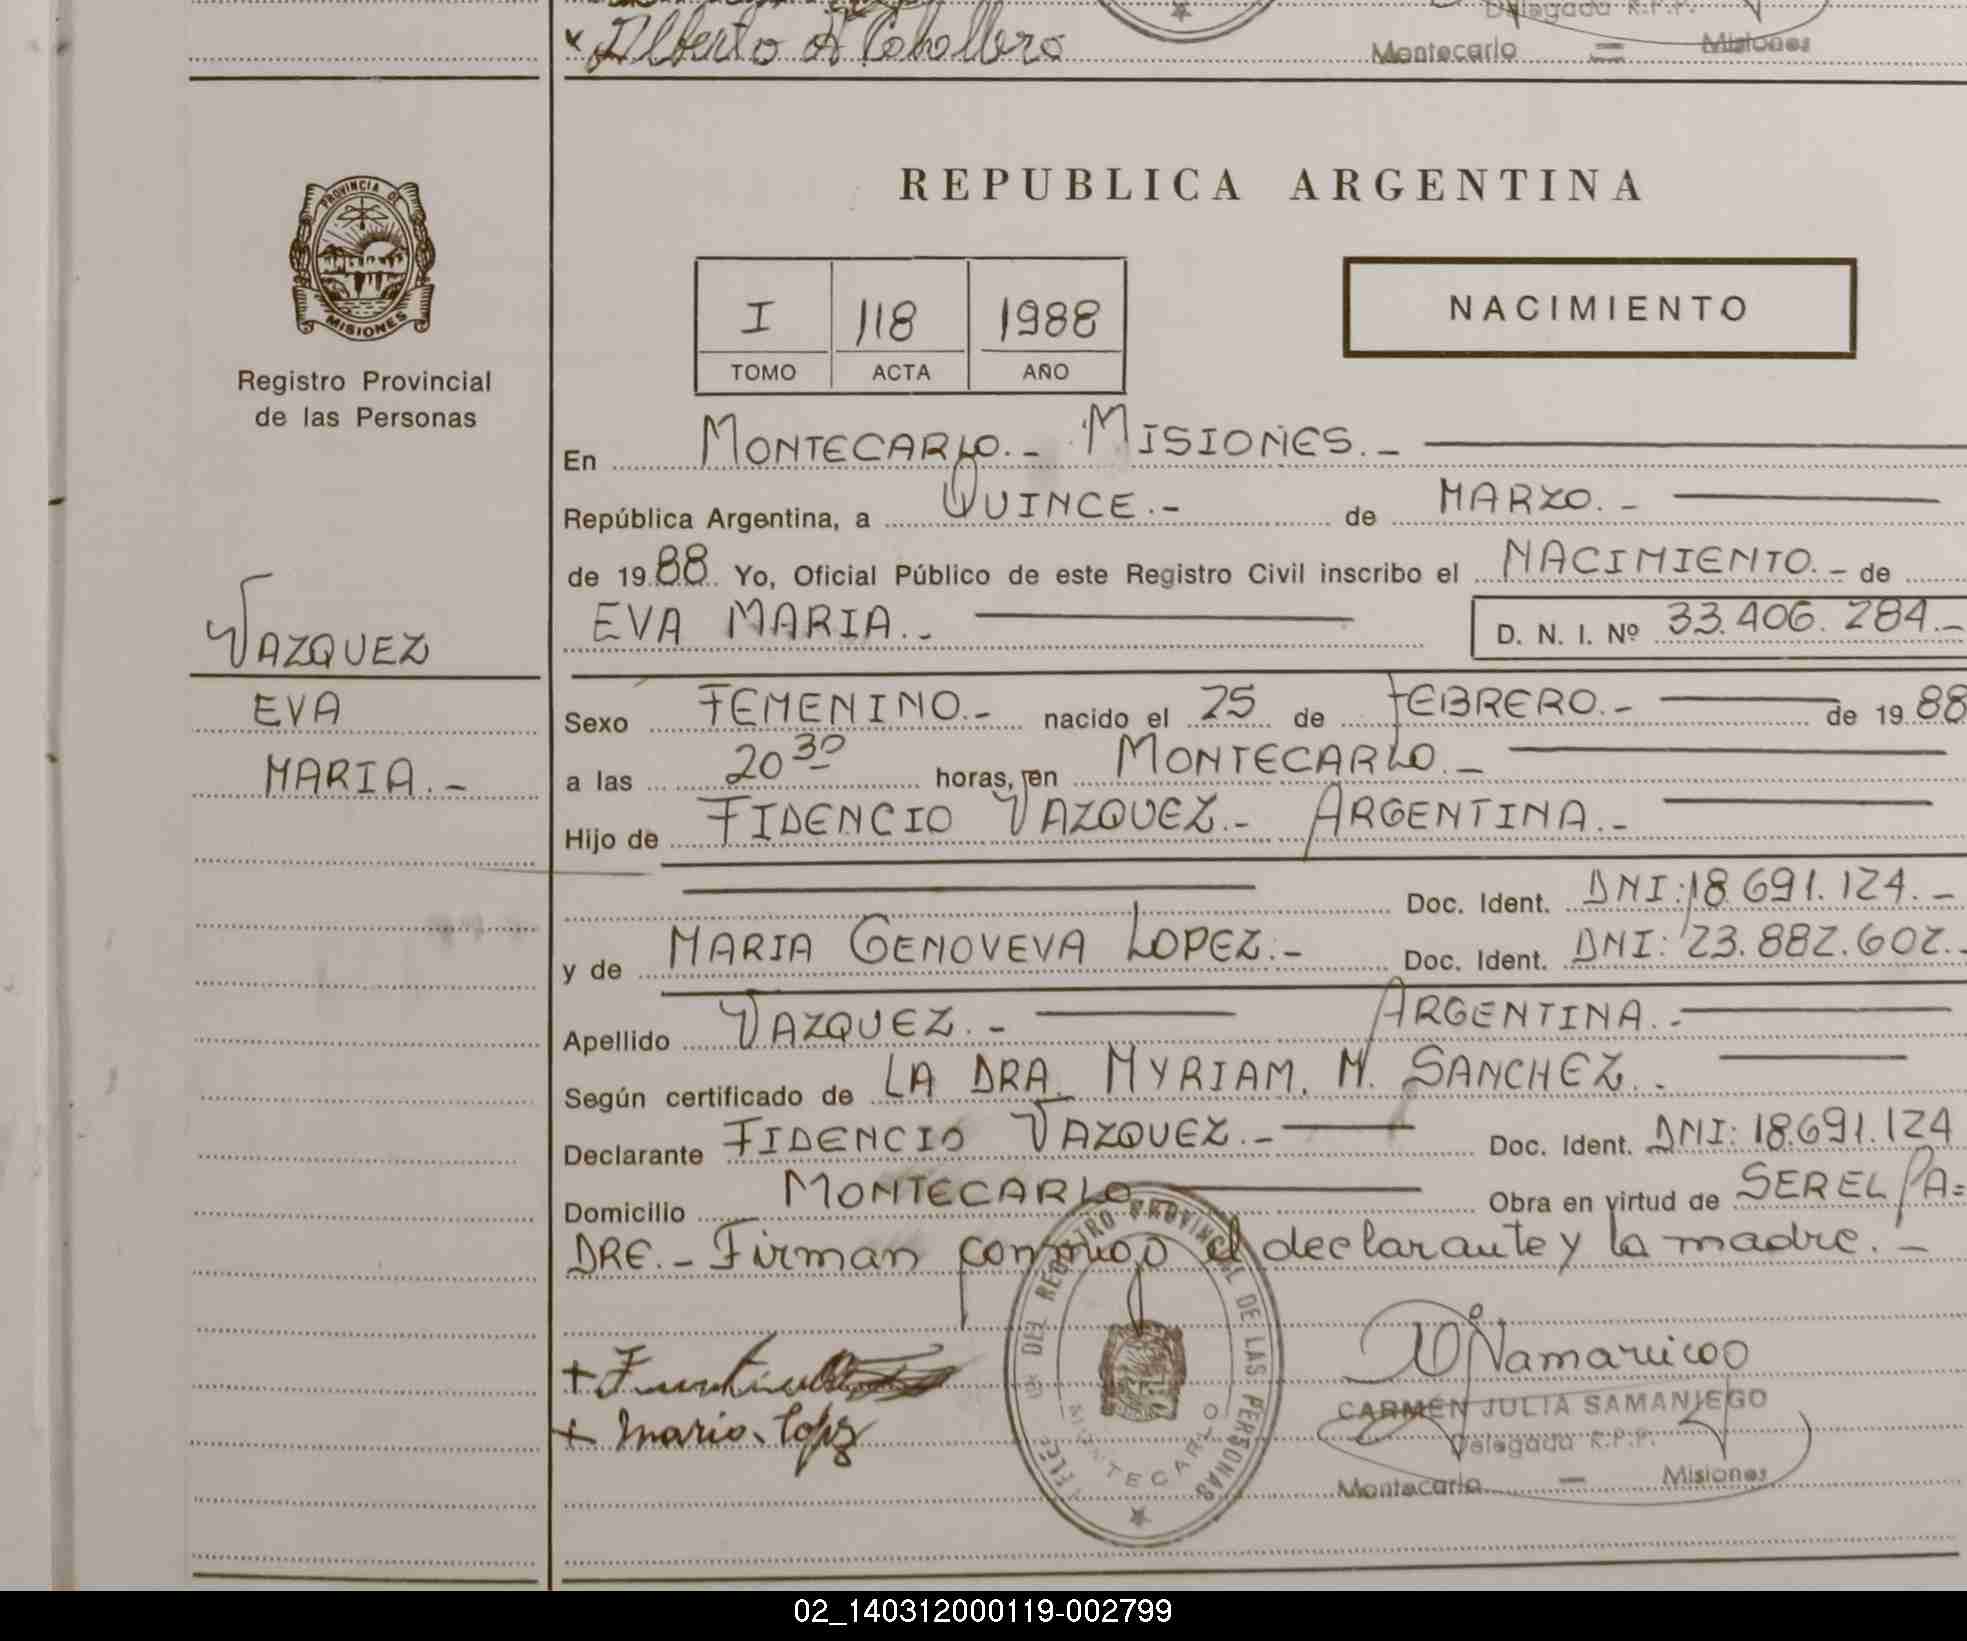 x Alberto A Caballero
Delegada R.P.P.
Montecarlo — Misiones
PROVINCIA DE
MISIONES
Registro Provincial
de las Personas
REPUBLICA ARGENTINA
I 118 1988
TOMO ACTA AÑO
NACIMIENTO
En MONTECARLO.- MISIONES.-
República Argentina, a QUINCE.- de MARZO.-
de 1988 Yo, Oficial Público de este Registro Civil inscribo el NACIMIENTO.- de
EVA MARIA.- D. N. I. Nº 33.406.284.-
VAZQUEZ
EVA
MARIA.-
Sexo FEMENINO.- nacido el 25 de FEBRERO.- de 1988
a las 20 30 horas, en MONTECARLO.-
Hijo de FIDENCIO VAZQUEZ.- ARGENTINA.-
Doc. Ident. DNI: 18.691.124.-
y de MARIA GENOVEVA LOPEZ.- Doc. Ident. DNI: 23.882.602.-
Apellido VAZQUEZ.- ARGENTINA.-
Según certificado de LA DRA. MYRIAM. M. SANCHEZ.-
Declarante FIDENCIO VAZQUEZ.- Doc. Ident. DNI: 18.691.124
Domicilio MONTECARLO Obra en virtud de SER EL PA=
DRE.- Firman conmigo el declarante y la madre.-
+ maria. Lopez
DEL REGISTRO PROVINCIAL DE LAS PERSONAS
MONTECARLO
CARMEN JULIA SAMANIEGO
Delegada R.P.P.
Montecarlo — Misiones
02_140312000119-002799